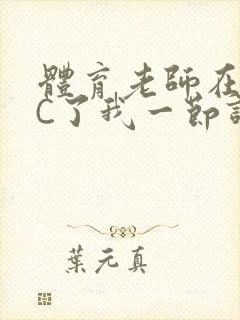 體育老師在
C了我一節
葉元真